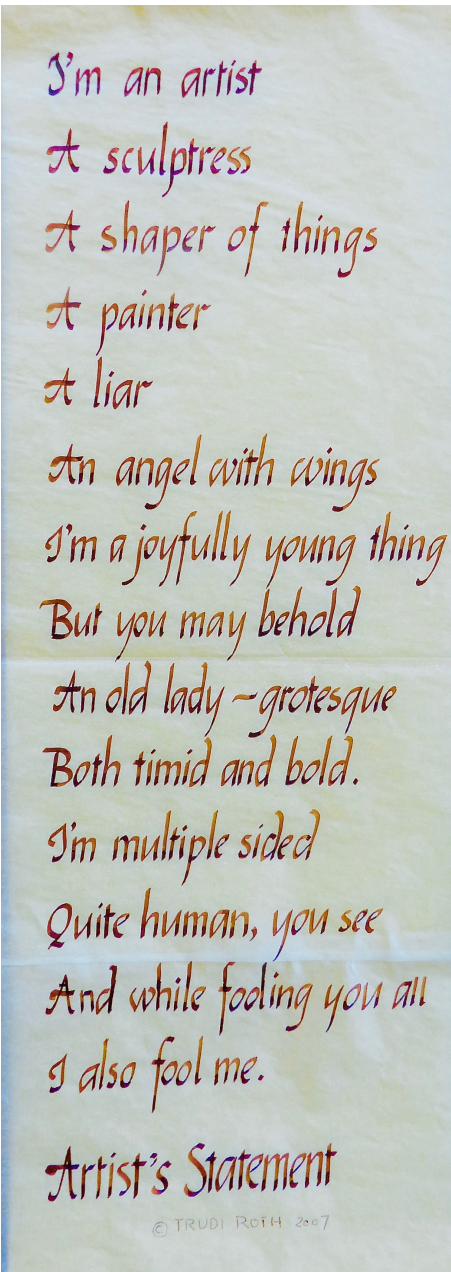 I'm an artist
A sculptress
A shaper of things
A painter
A liar
An angel with wings
I'm a joyfully young thing
But you may behold
An old lady – grotesque
Both timid and bold.
I'm multiple sided
Quite human, you see
And while fooling you all
I also fool me.
Artist's Statement
© TRUDI ROTH 2007